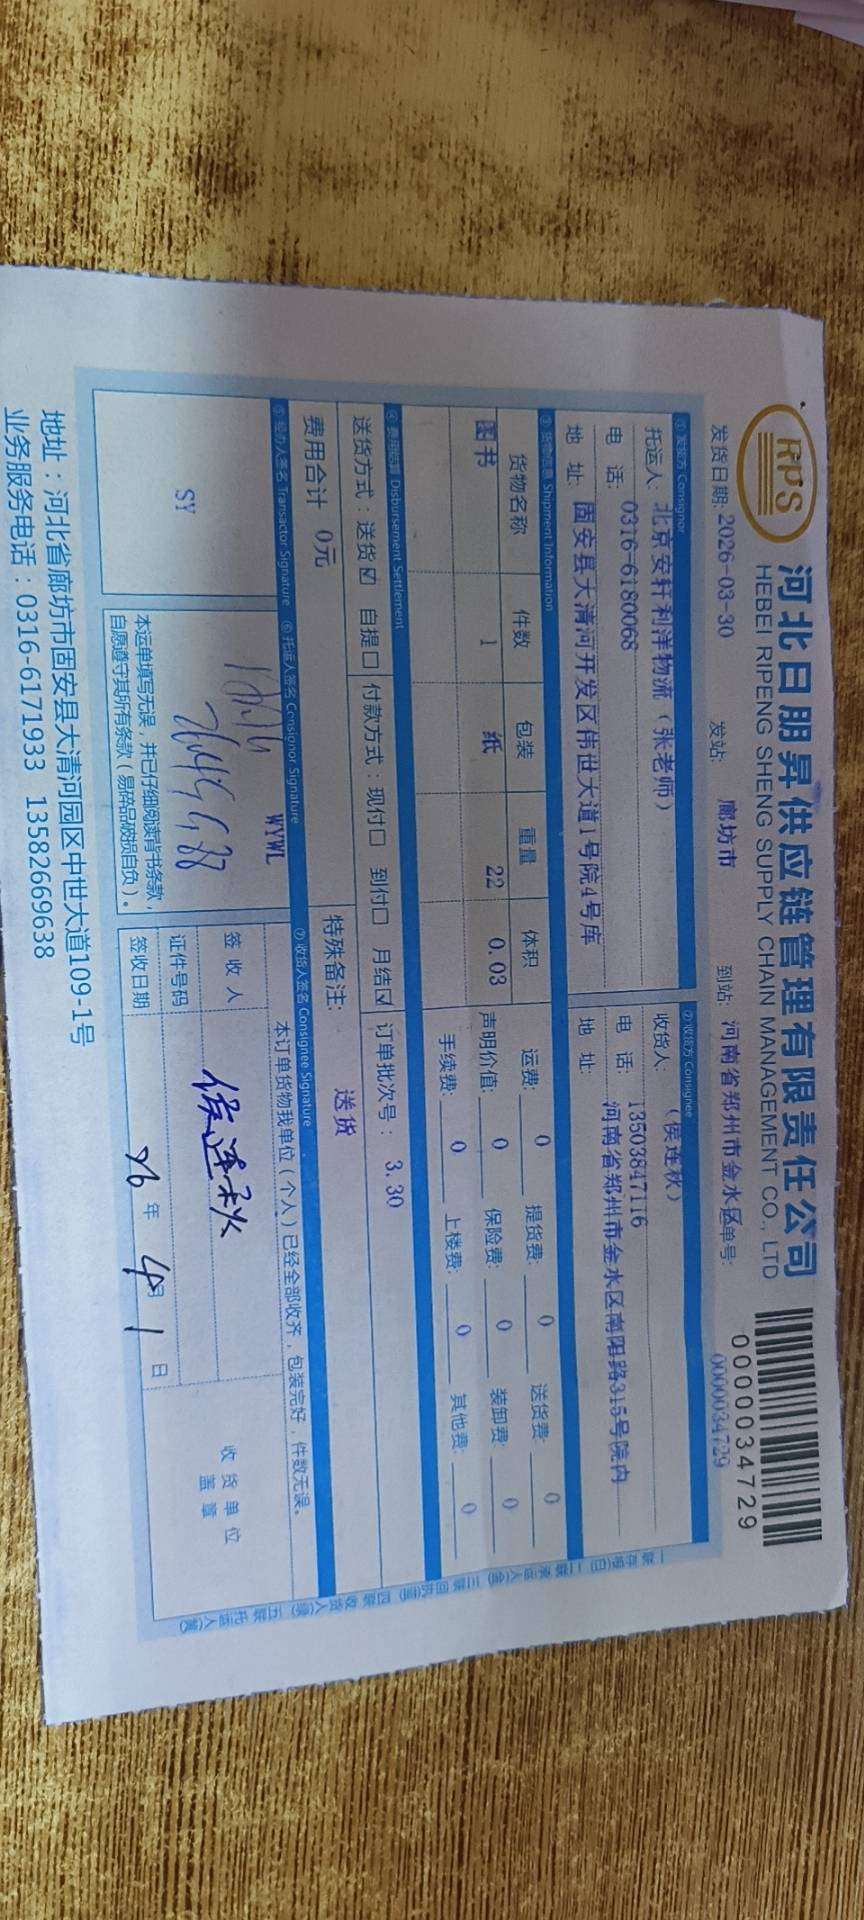 RPS
河北日朋昇供应链管理有限责任公司
HEBEI RIPENG SHENG SUPPLY CHAIN MANAGEMENT CO., LTD
0000034729
发货日期: 2026-03-30 发站: 廊坊市 到站: 河南省郑州市金水区 单号: 0000034729
①发货方 Consignor ②收货方 Consignee
托运人: 北京安轩利洋物流（张老师） 收货人: （侯连秋）
电 话: 0316-6180068 电 话: 13503847116
地 址: 固安县大清河开发区伟世大道1号院4号库 地 址: 河南省郑州市金水区南阳路315号院内
③货物信息 Shipment Information
货物名称 件数 包装 重量 体积 运费: 0 提货费: 0 送货费: 0
图书 1 纸 22 0.03 声明价值: 0 保险费: 0 装卸费: 0
手续费: 0 上楼费: 0 其他费: 0
④费用结算 Disbursement Settlement
送货方式：送货☑ 自提□ 付款方式：现付□ 到付□ 月结☑ 订单批次号：3.30
费用合计 0元 特殊备注: 送货
⑤经办人签名 Transactor Signature ⑥托运人签名 Consignor Signature ⑦收货人签名 Consignee Signature
SY
WYWL
本运单填写无误，并已仔细阅读背书条款，
自愿遵守其所有条款（易碎品破损自负）。
本订单货物我单位（个人）已经全部收齐，包装完好，件数无误。
签收人 侯连秋
证件号码
签收日期 26年 4月 1日
收货单位
盖章
地址：河北省廊坊市固安县大清河园区中世大道109-1号
业务服务电话：0316-6171933 13582669638